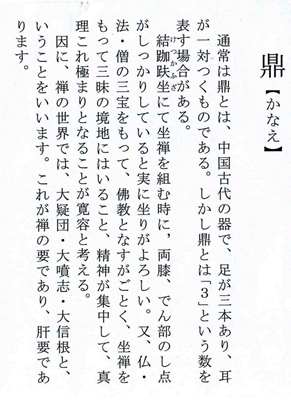 鼎【かなえ】
通常は鼎とは、中国古代の器で、足が三本あり、耳
が一対つくものである。しかし鼎とは「3」という数を
表す場合がある。
けっかふざ
結跏趺坐にて坐禅を組む時に，両膝、でん部のし点
がしっかりしていると実に坐りがよろしい。又、仏・
法・僧の三宝をもって、佛教となすがごとく、坐禅を
もって三昧の境地にはいること、精神が集中して、真
理これ極まりとなることが寛容と考える。
因に、禅の世界では、大疑団・大噴志・大信根と、
いうことをいいます。これが禅の要であり、肝要であ
ります。